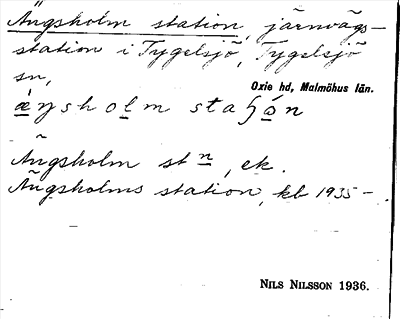 Ängsholm station, järnvägs-
station i Tygelsjö, Tygelsjö
sn,
Oxie hd, Malmöhus län.
ǽŋsholm staʃón
Ängsholm st n, ek.
Ängsholms station, kb 1935–
NILS NILSSON 1936.